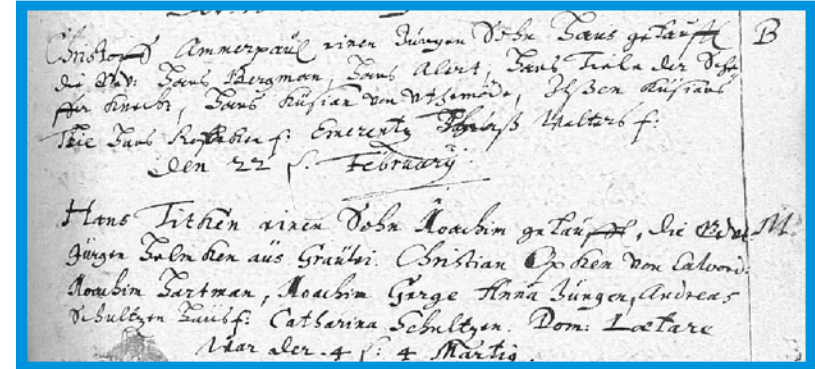 Christoff Ammerpaul einen Jungen Sohn Hans getaufft B
die Gev: Hans Bergman, Hans Alvert, Hans Tiele der Sche
ffer Knecht, Hans Küsian von Uthemöde, Küsians
Hans f: Emerentz Walters f:
den 22 s. February.
Hans Titken einen Sohn Joachim getaufft, die Gev M.
Jürgen Helmken aus Christian Opken von Calvord.
Joachim Hartman, Joachim Gerge Anna Jungen, Andreas
Schultzen Haus f: Catharina Schultzen. Dom: Lætare
war der 4 s: 4 Martig.